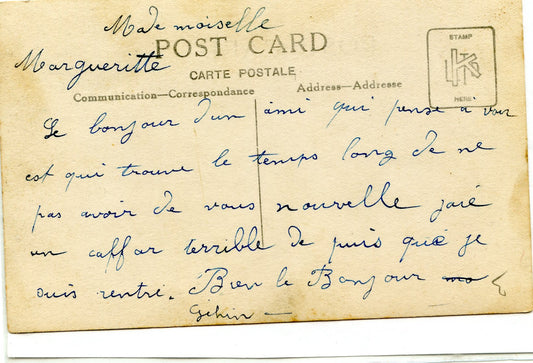 Made moiselle
Margueritte
POST CARD
CARTE POSTALE
Communication—Correspondance
Address—Addresse
STAMP
HERE
Le bonjour d'un ami qui pense a voir
est qui trouve le temps long de ne
pas avoir de vous nouvelle jaié
un caffar terrible de puis que je
suis rentré. Bien le Bonjour
Gihin —